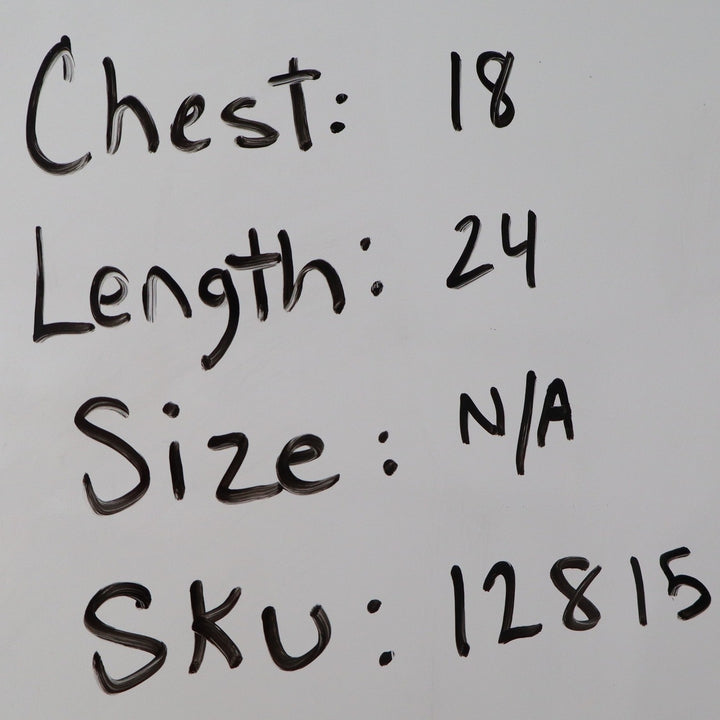 Chest: 18
Length: 24
Size: N/A
SKU: 12815